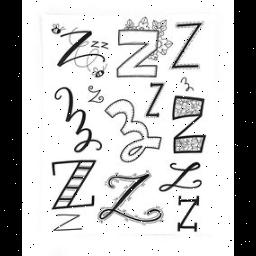 Z zz Z Z
z Z
Z Z Z
Z Z Z
Z Z Z